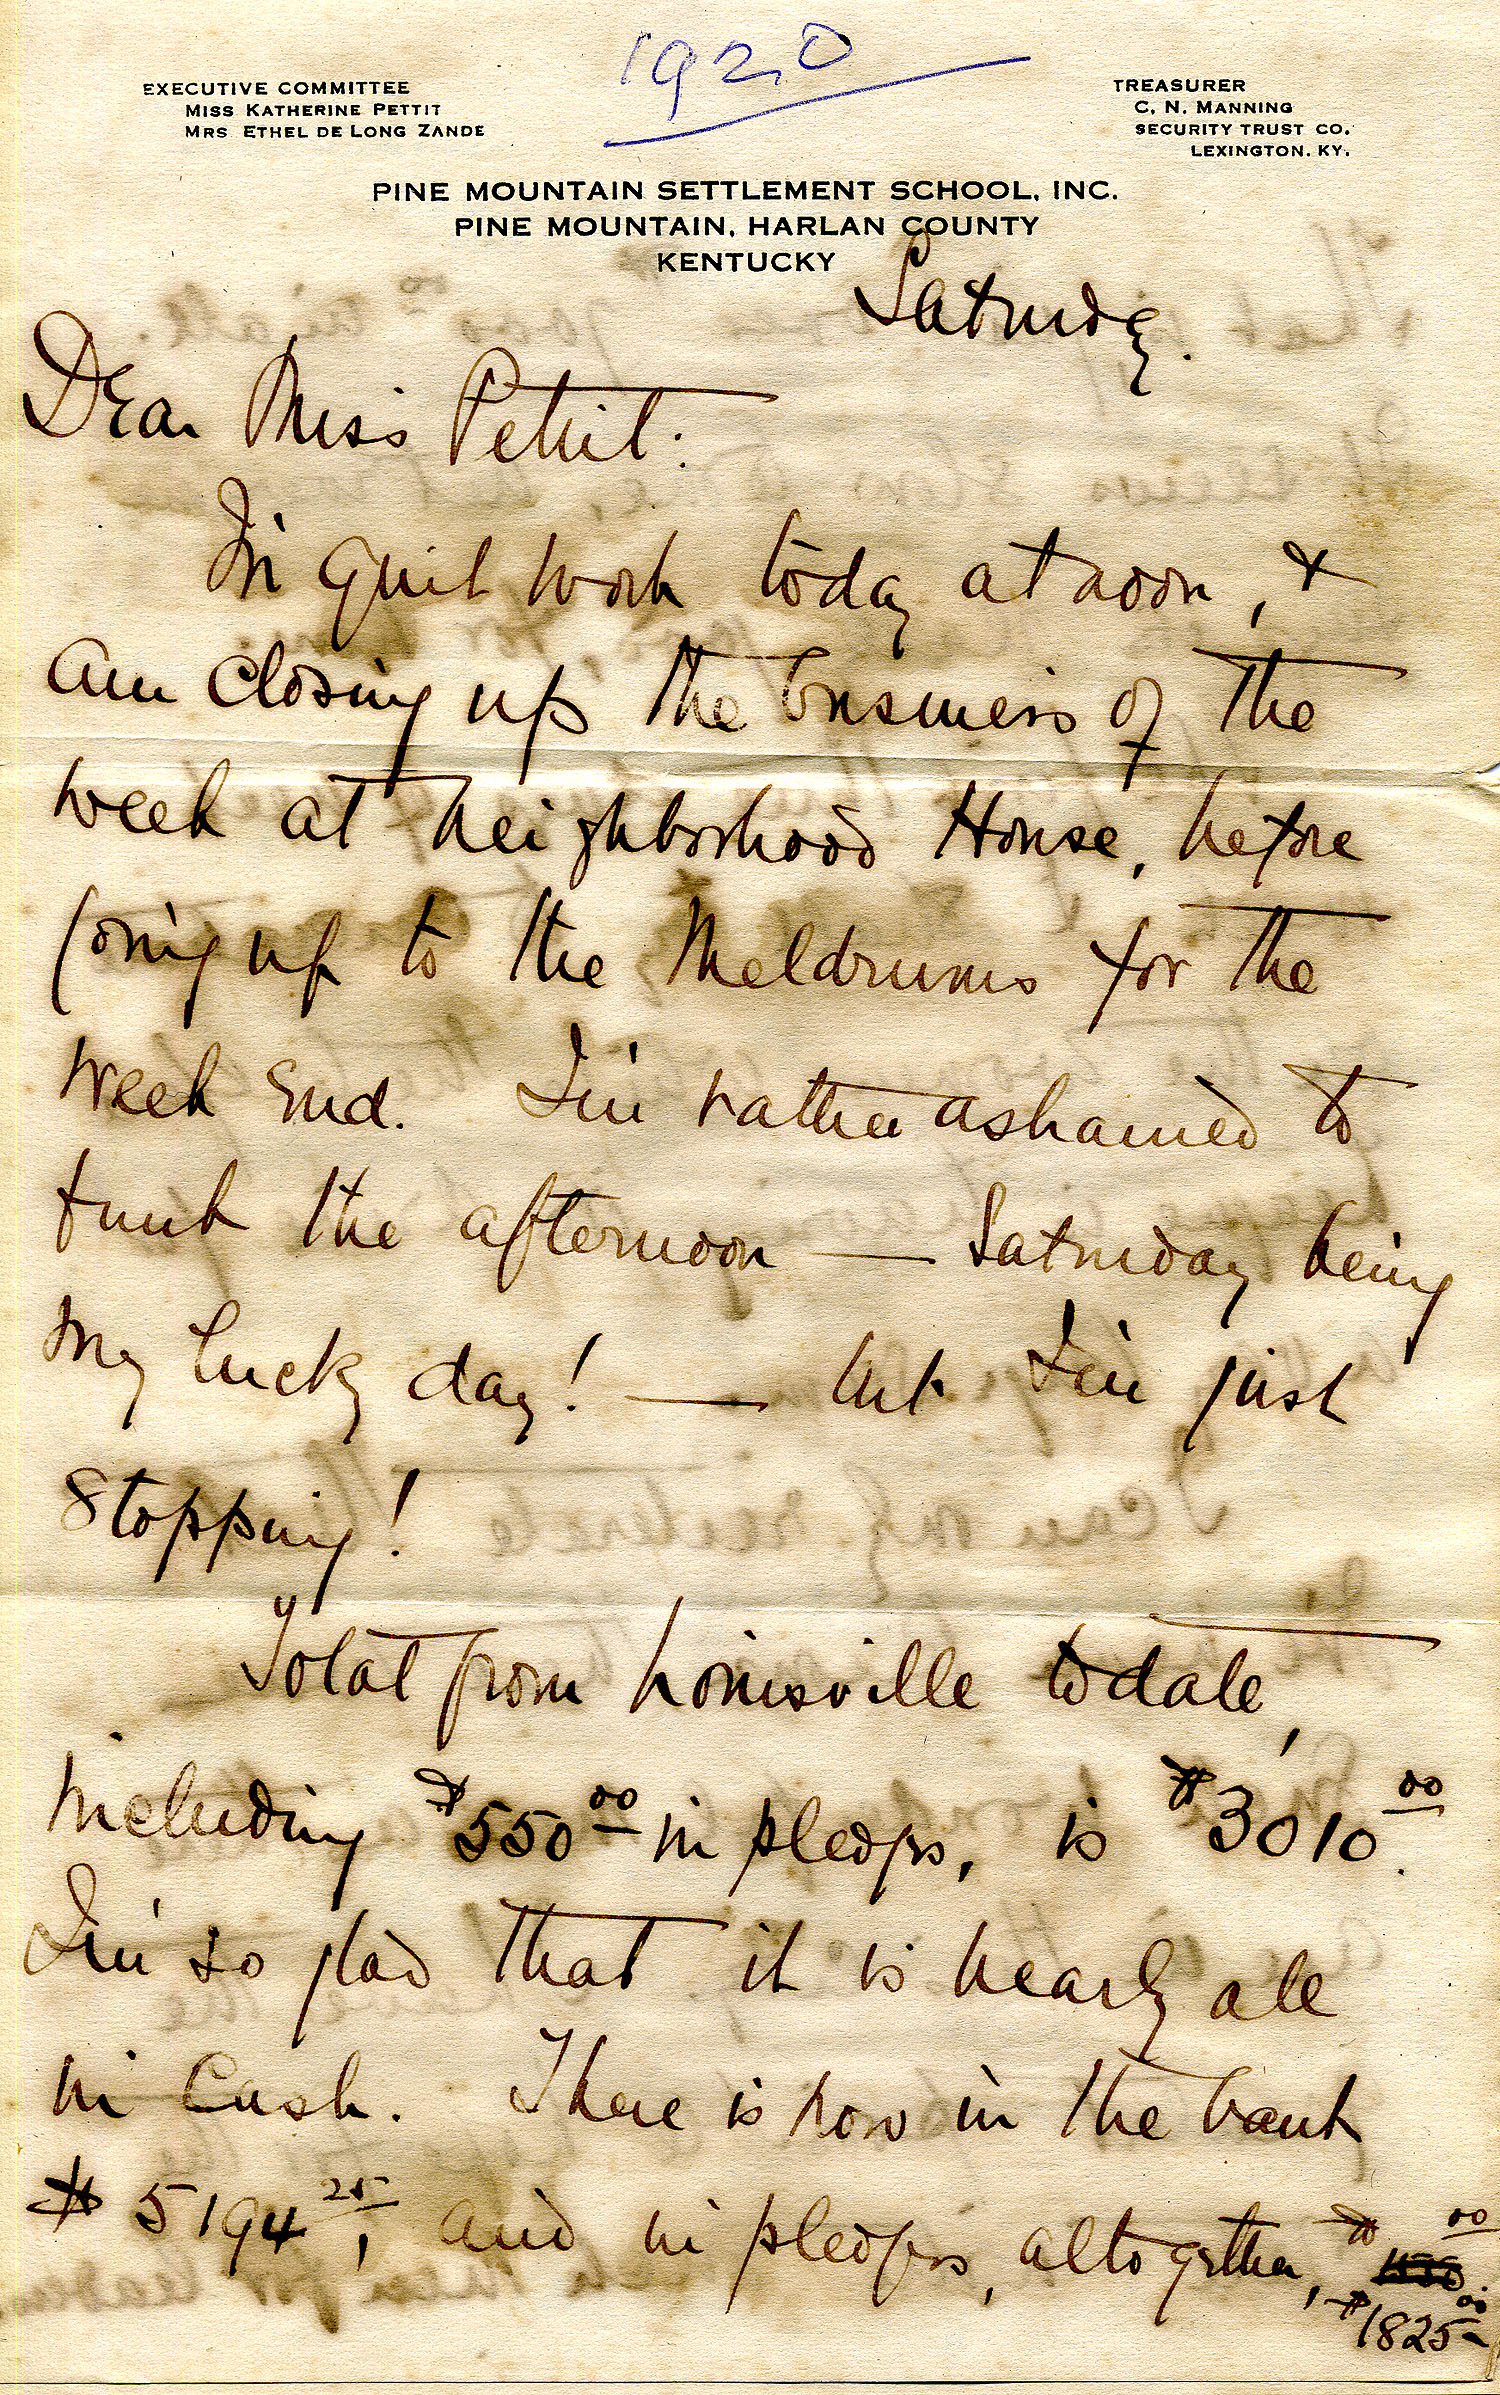 1920
EXECUTIVE COMMITTEE
MISS KATHERINE PETTIT
MRS ETHEL DE LONG ZANDE
TREASURER
C. N. MANNING
SECURITY TRUST CO.
LEXINGTON. KY.
PINE MOUNTAIN SETTLEMENT SCHOOL, INC.
PINE MOUNTAIN, HARLAN COUNTY
KENTUCKY
Saturday.
Dear Miss Pettit:
I'm quit work today at noon, &
am closing up the business of the
week at Neighborhood House, before
going up to the Meldrums for the
week end. I'm rather ashamed to
funk the afternoon — Saturday being
my lucky day! — but I'm just
stopping!
Total from Louisville to date,
including $550.00 in pledges, is $3010.00.
I'm so glad that it is nearly all
in cash. There is now in the bank
$5194.25, and in pledges, altogether, $ .00
$1825.00